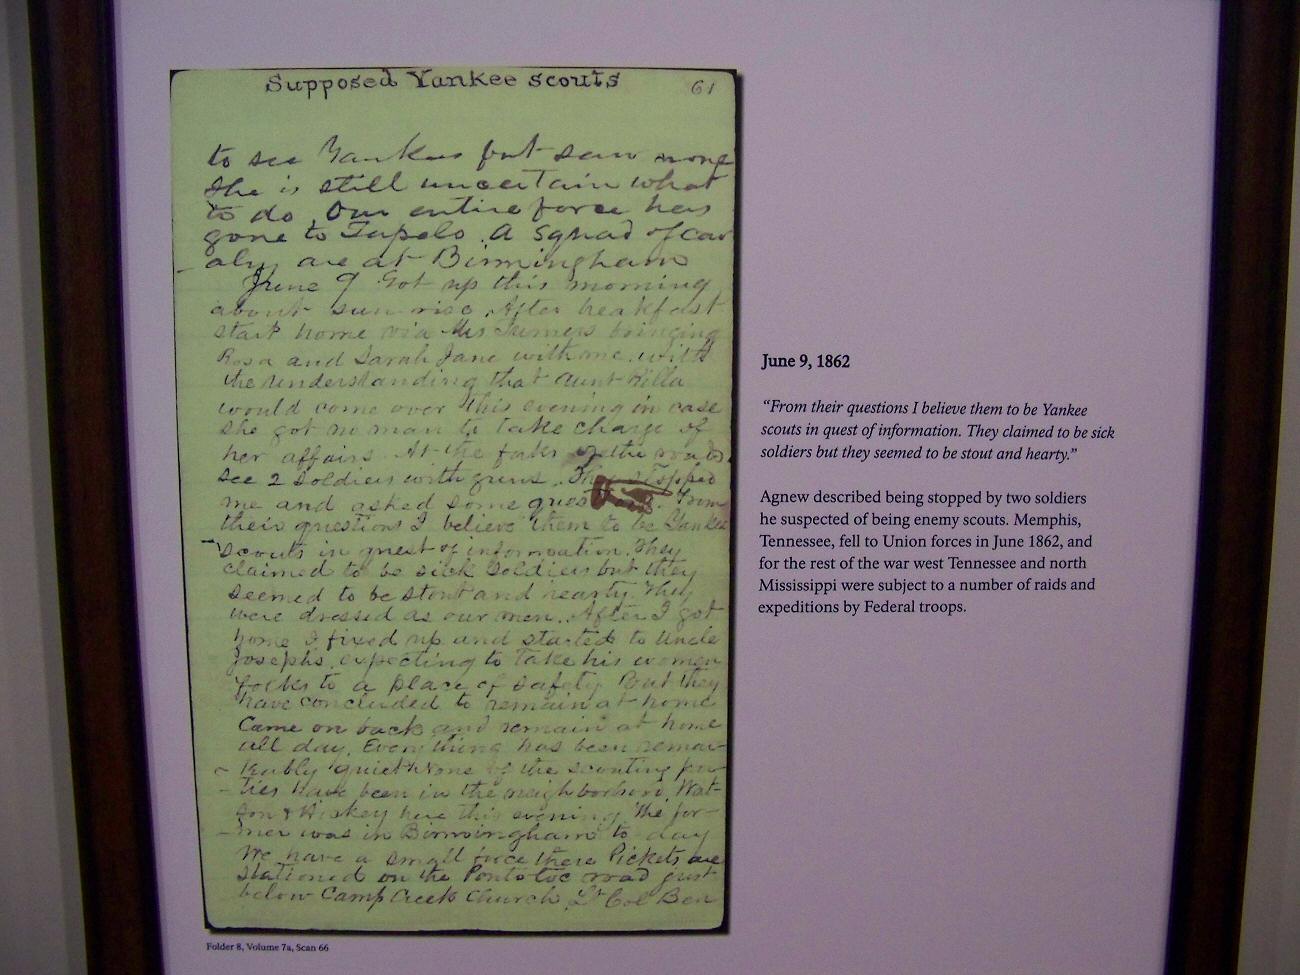 Supposed Yankee scouts 61
to see Yankees but saw none
She is still uncertain what
to do. Our entire force has
gone to Tupelo. A squad of cav
alry are at Birmingham
June 9 Got up this morning
about sun rise. After breakfast
start home via Mrs Turners bringing
Rosa and Sarah Jane with me. with
the understanding that Aunt Rilla
would come over this evening in case
she got no man to take charge of
her affairs. At the forks of the road
see 2 soldiers with guns. They stopped
me and asked some questions. From
their questions I believe them to be Yankee
scouts in quest of information. They
claimed to be sick soldiers but they
seemed to be stout and hearty. They
were dressed as our men. After I got
home I fixed up and started to Uncle
Josephs, expecting to take his women
folks to a place of safety But they
have concluded to remain at home
Came on back and remain at home
all day. Everything has been remar-
kably quiet. None of the scouting par
ties have been in the neighborhood. Wat-
son & Hickey here this evening. The for-
mer was in Birmingham to-day
We have a small force there Pickets are
stationed on the Pontotoc road just
below Camp Creek Church. Lt Col Ben
Folder 8, Volume 7a, Scan 66
June 9, 1862
“From their questions I believe them to be Yankee
scouts in quest of information. They claimed to be sick
soldiers but they seemed to be stout and hearty.”
Agnew described being stopped by two soldiers
he suspected of being enemy scouts. Memphis,
Tennessee, fell to Union forces in June 1862, and
for the rest of the war west Tennessee and north
Mississippi were subject to a number of raids and
expeditions by Federal troops.